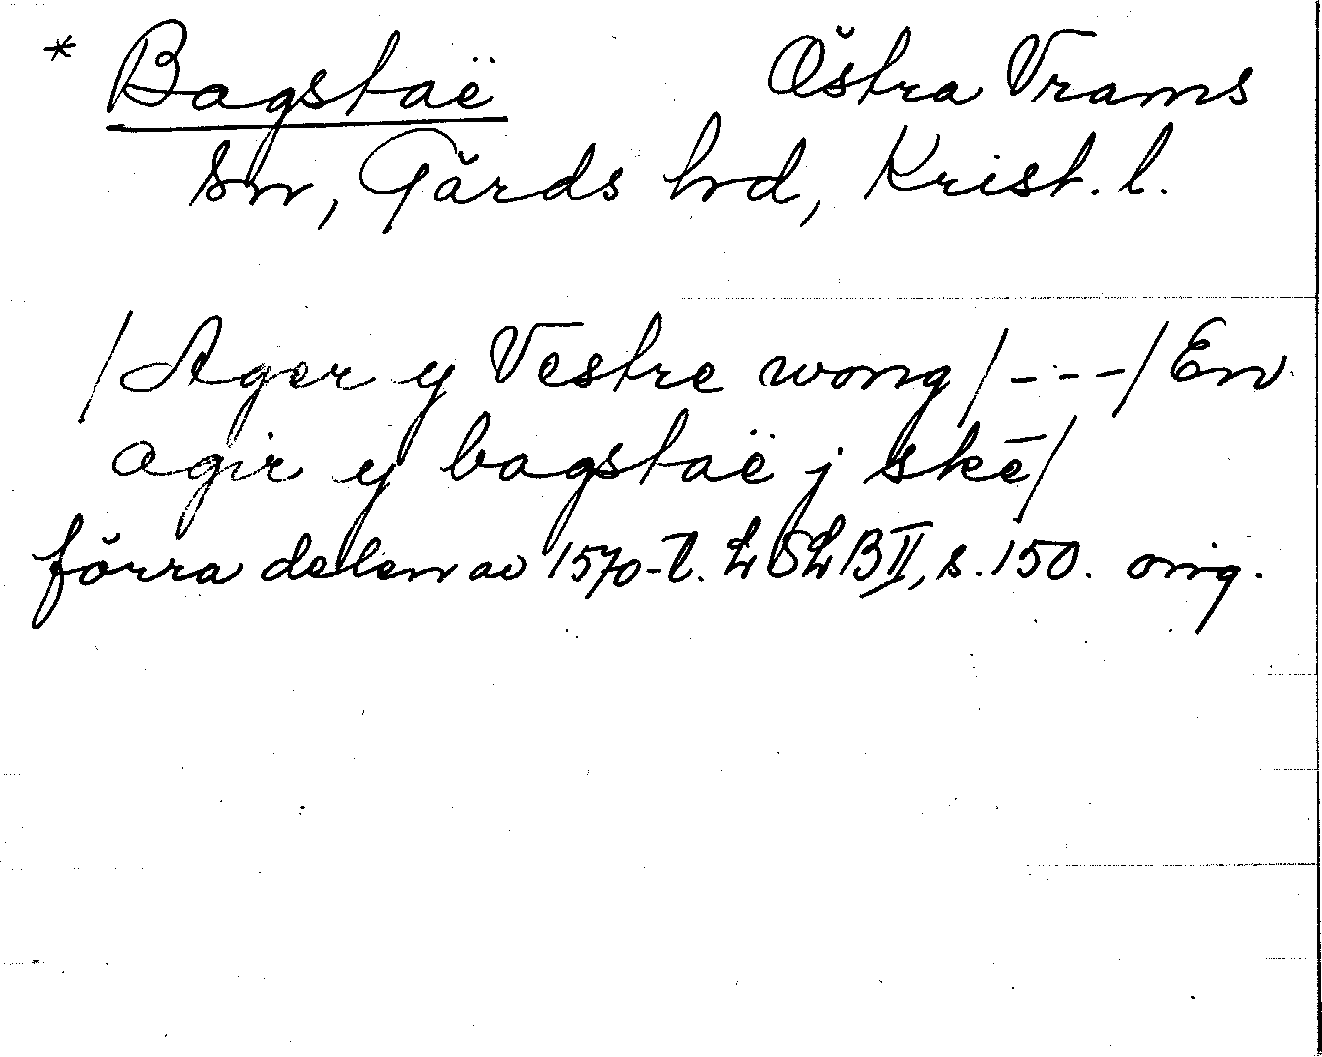 * Bagstaë Östra Vrams
sn, Gärds hrd, Krist. l.
/Ager y Vestre wong/ - - - /En
agir y bagstaë j skē/
förra delen av 1570-t. LSLB II, s. 150. orig.